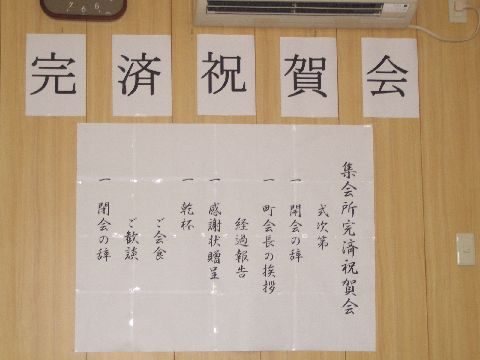 完済祝賀会
集会所完済祝賀会
式次第
一 開会の辞
一 町会長の挨拶
経過報告
一 感謝状贈呈
一 乾杯
ご会食
ご歓談
一 閉会の辞